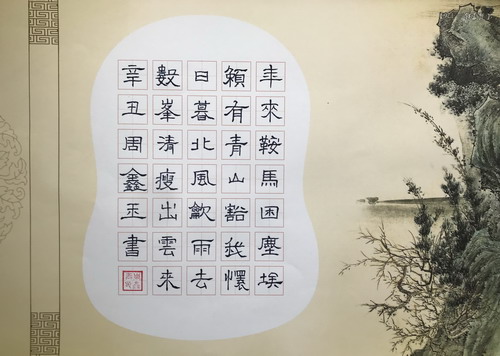 年來鞍馬困塵埃
賴有青山豁我懷
日暮北風吹雨去
數峯清瘦出雲來
辛丑周鑫玉書